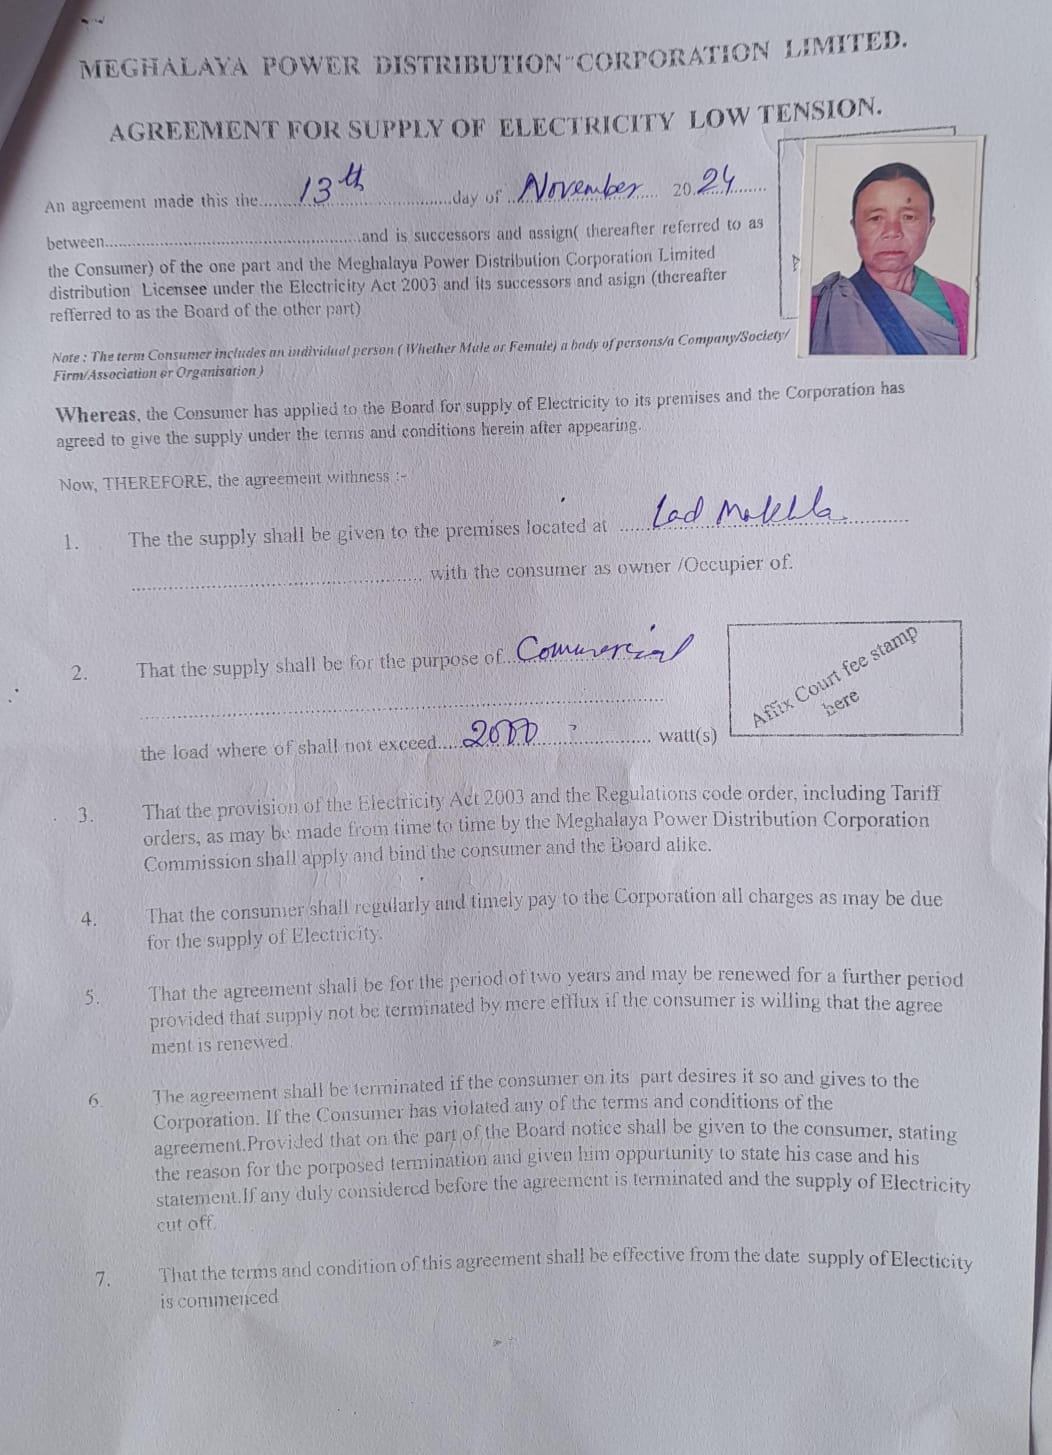 MEGHALAYA POWER DISTRIBUTION CORPORATION LIMITED.
AGREEMENT FOR SUPPLY OF ELECTRICITY LOW TENSION.
An agreement made this the..........13th..........day of ..November.... 20.24.......
between..................................................and is successors and assign( thereafter referred to as
the Consumer) of the one part and the Meghalaya Power Distribution Corporation Limited
distribution Licensee under the Electricity Act 2003 and its successors and asign (thereafter
refferred to as the Board of the other part)
Note : The term Consumer includes an individual person ( Whether Male or Female) a body of persons/a Company/Society/
Firm/Association or Organisation )
Whereas, the Consumer has applied to the Board for supply of Electricity to its premises and the Corporation has
agreed to give the supply under the terms and conditions herein after appearing.
Now, THEREFORE, the agreement withness :-
1. The the supply shall be given to the premises located at ......Lad Mokhla..........
.................................................. with the consumer as owner /Occupier of.
2. That the supply shall be for the purpose of..Commercial
Affix Court fee stamp
here
the load where of shall not exceed.....2000.................... watt(s)
3. That the provision of the Electricity Act 2003 and the Regulations code order, including Tariff
orders, as may be made from time to time by the Meghalaya Power Distribution Corporation
Commission shall apply and bind the consumer and the Board alike.
4. That the consumer shall regularly and timely pay to the Corporation all charges as may be due
for the supply of Electricity.
5. That the agreement shall be for the period of two years and may be renewed for a further period
provided that supply not be terminated by mere efflux if the consumer is willing that the agree
ment is renewed.
6. The agreement shall be terminated if the consumer on its part desires it so and gives to the
Corporation. If the Consumer has violated any of the terms and conditions of the
agreement.Provided that on the part of the Board notice shall be given to the consumer, stating
the reason for the porposed termination and given him oppurtunity to state his case and his
statement.If any duly considered before the agreement is terminated and the supply of Electricity
cut off.
7. That the terms and condition of this agreement shall be effective from the date supply of Electicity
is commenced